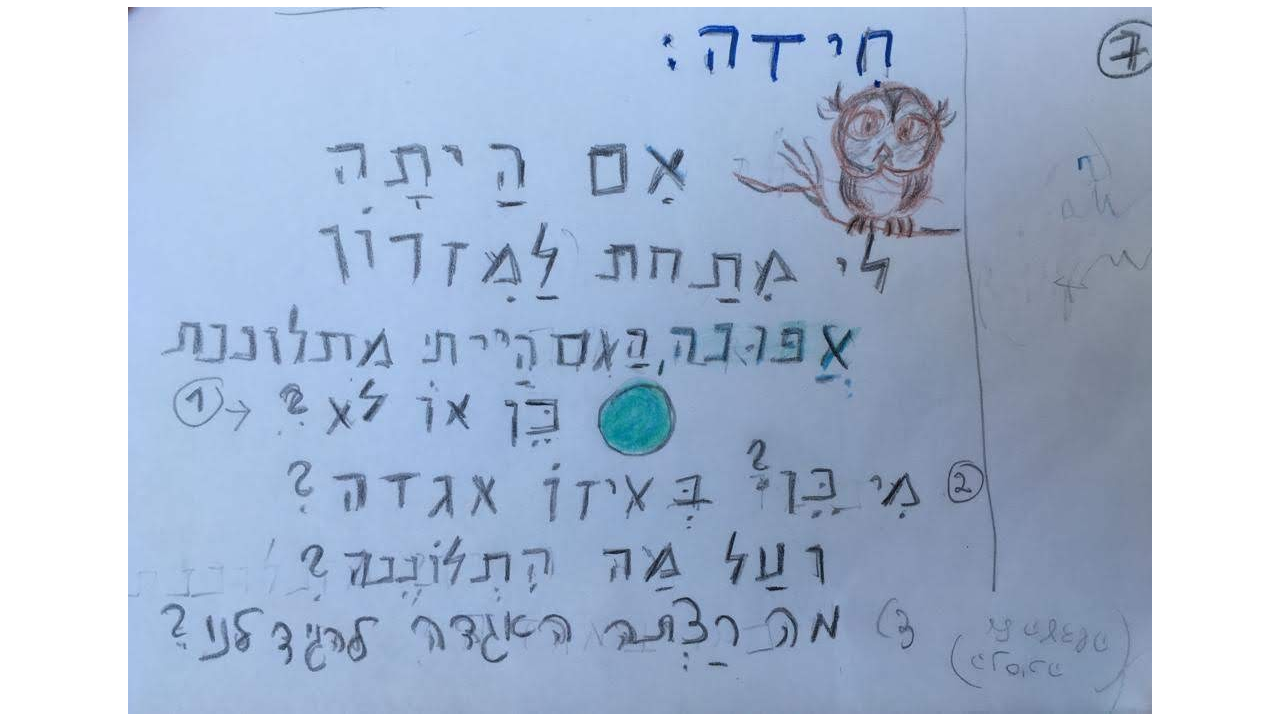 חִידה:
7
אִם הַיתָה
לי מִתַחת לַמִזרוֹן
אֲפוּנה, הַאִם הָייתי מתלוננת
כֵּן אוֹ לֹא? → 1
2 מִי כֵּן? בְּאיזוֹ אגדה?
ועַל מַה הִתְלוֹנְנָה?
3) מה רָצְתה האגדה להגיד לנו?